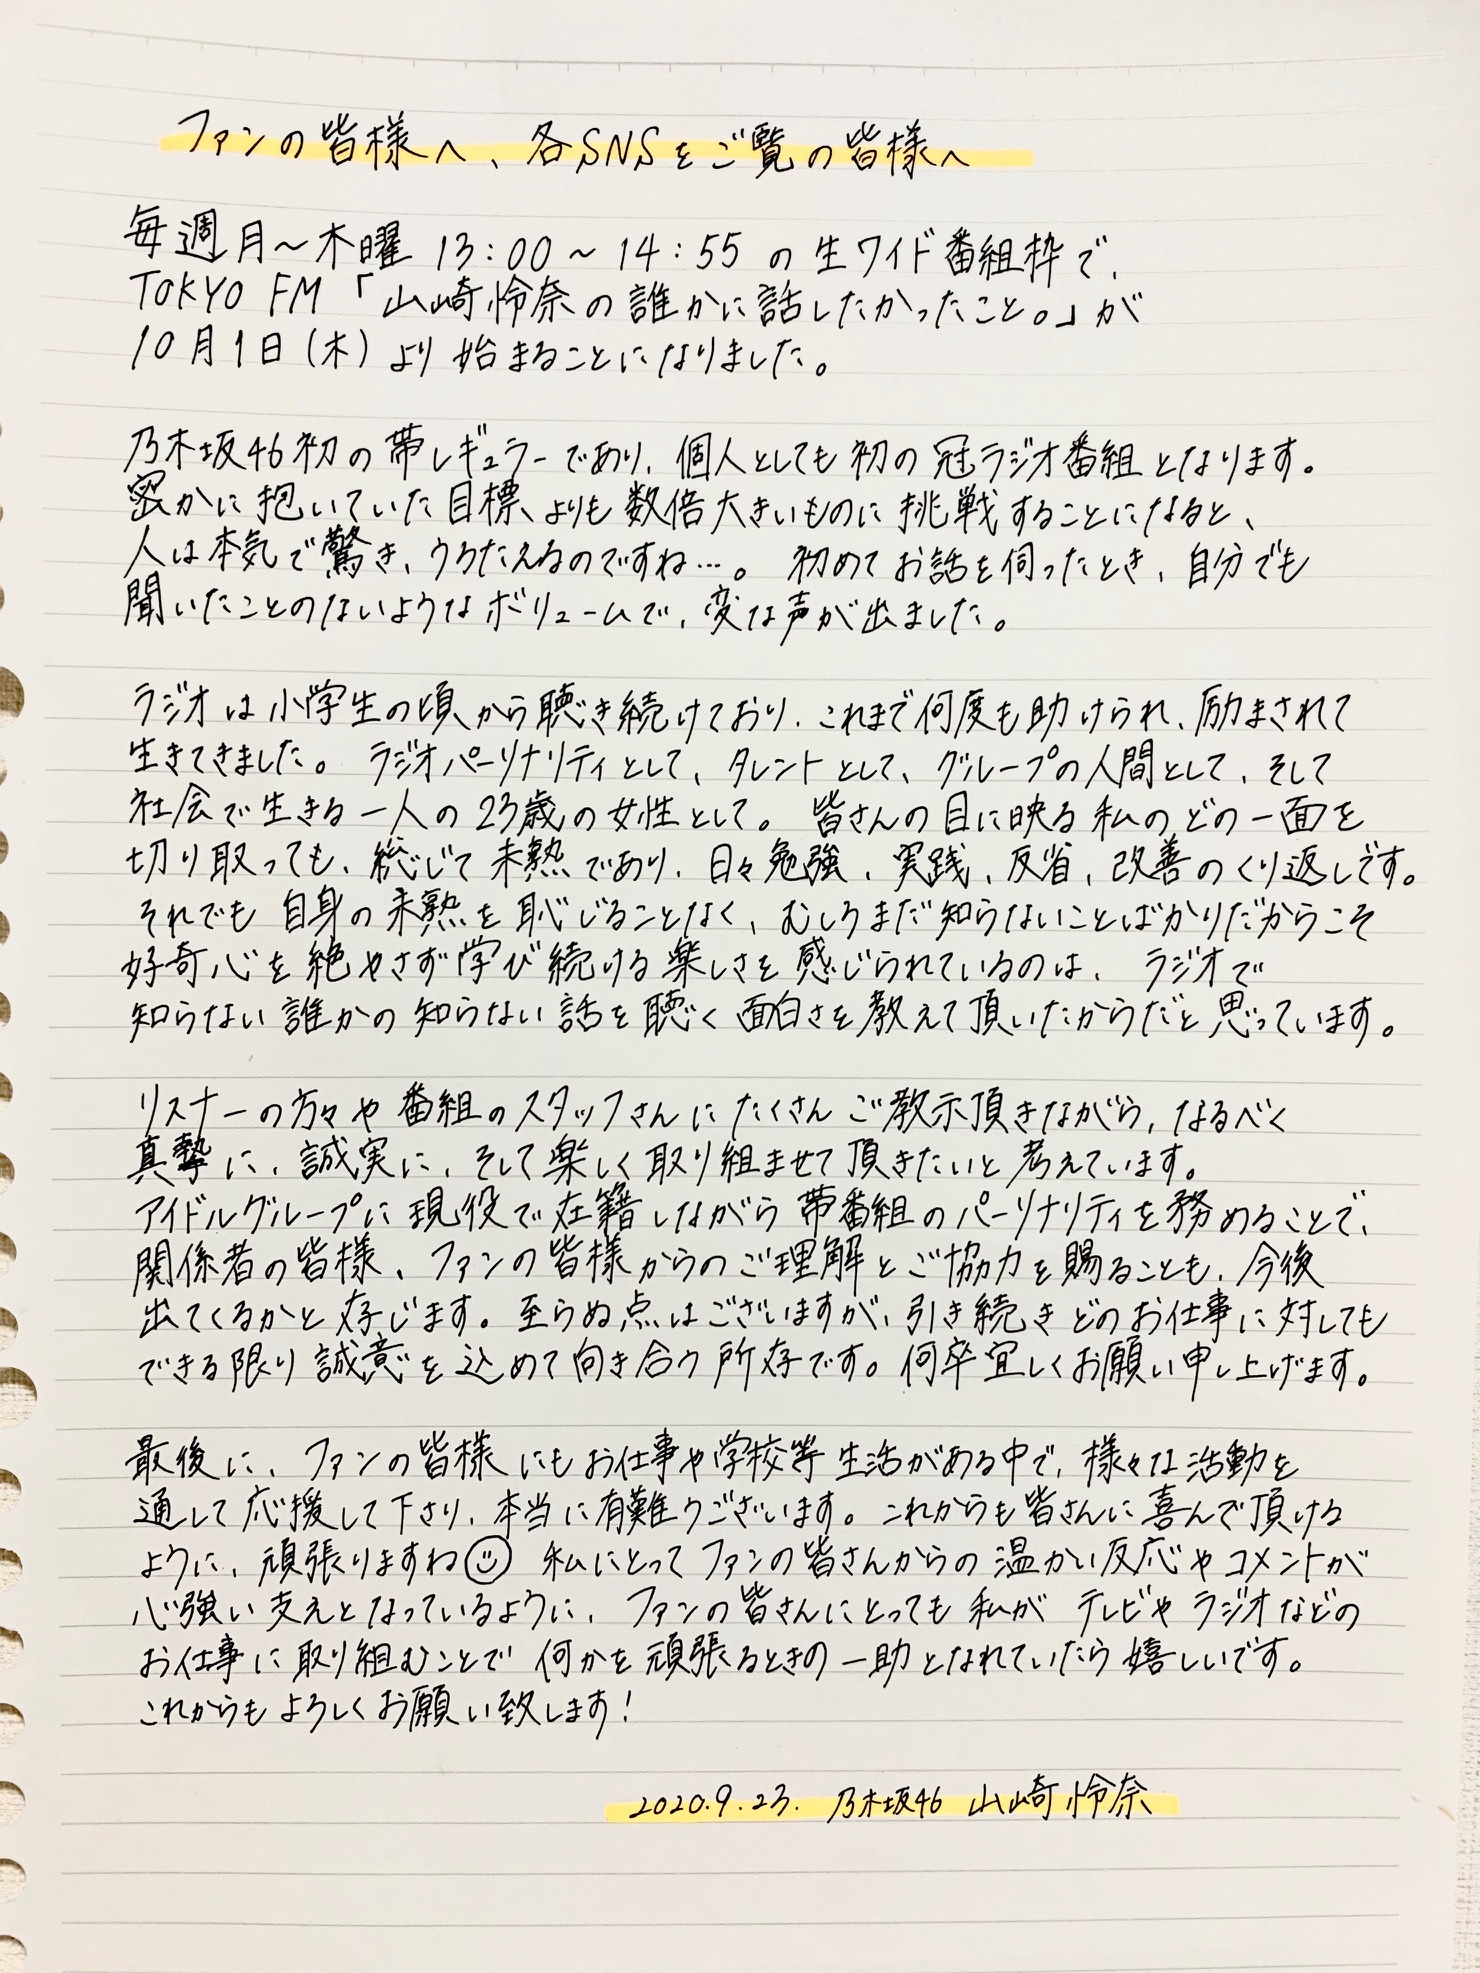 ファンの皆様へ、各SNSをご覧の皆様へ
毎週月～木曜 13:00～14:55の生ワイド番組枠で、
TOKYO FM「山崎怜奈の誰かに話したかったこと。」が
10月1日(木)より始まることになりました。
乃木坂46初の帯レギュラーであり、個人としても初の冠ラジオ番組となります。
密かに抱いていた目標よりも数倍大きいものに挑戦することになると、
人は本気で驚き、うろたえるのですね…。初めてお話を伺ったとき、自分でも
聞いたことのないようなボリュームで、変な声が出ました。
ラジオは小学生の頃から聴き続けており、これまで何度も助けられ、励まされて
生きてきました。ラジオパーソナリティとして、タレントとして、グループの人間として、そして
社会で生きる一人の23歳の女性として。皆さんの目に映る私のどの一面を
切り取っても、総じて未熟であり、日々勉強、実践、反省、改善のくり返しです。
それでも自身の未熟を恥じることなく、むしろまだ知らないことばかりだからこそ
好奇心を絶やさず学び続ける楽しさを感じられているのは、ラジオで
知らない誰かの知らない話を聴く面白さを教えて頂いたからだと思っています。
リスナーの方々や番組のスタッフさんにたくさんご教示頂きながら、なるべく
真摯に、誠実に、そして楽しく取り組ませて頂きたいと考えています。
アイドルグループに現役で在籍しながら帯番組のパーソナリティを務めることで、
関係者の皆様、ファンの皆様からのご理解とご協力を賜ることも、今後
出てくるかと存じます。至らぬ点はございますが、引き続きどのお仕事に対しても
できる限り誠意を込めて向き合う所存です。何卒宜しくお願い申し上げます。
最後に、ファンの皆様にもお仕事や学校等生活がある中で、様々な活動を
通して応援して下さり、本当に有難うございます。これからも皆さんに喜んで頂ける
ように、頑張りますね☺ 私にとってファンの皆さんからの温かい反応やコメントが
心強い支えとなっているように、ファンの皆さんにとっても私がテレビやラジオなどの
お仕事に取り組むことで何かを頑張るときの一助となれていたら嬉しいです。
これからもよろしくお願い致します!
2020.9.23. 乃木坂46 山崎怜奈